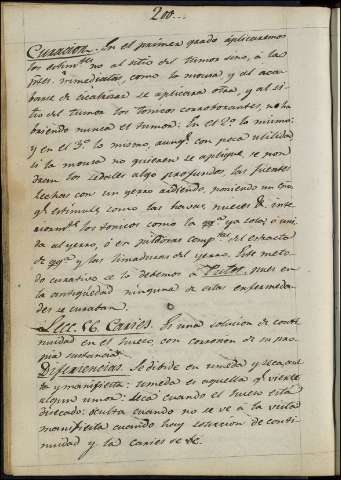 200...
Curacion. En el primer grado aplicaremos
los estim.tes no al sitio del tumor sino, á la
ptes. inmediatas, como la moxa y de aca-
barse de cicatrizar se aplicara otra, y al si-
tio del tumor los tonicos corroborantes, no ha
briendo nunca el tumor: En el 2º. lo mismo:
y en el 3º. lo mismo, aunq.e con poca utilidad
si la moxa no quieren se aplique, se pon
dran los sedales algo profundos, las fuentes
hechas con un yerro ardiendo, poniendo un
q.e estimule como las havas, nueces &. inte
riorm.te los tonicos como la qq.a ya sola, ó uni
da al yerro, ó en pildoras comp.tas del extracto
de qq.a y las limaduras del yerro. Este meto-
do curativo se lo debemos á pues en
la antigüedad ninguna de estas enfermeda-
des se curaban.
Lecc. 86. Caries. Es una solucion de conti
nuidad en el hueso, con corrosion de su pro
pia sustancia.
Diferencias. Se dibide en umeda y seca, ocul-
ta y manifiesta: umeda es aquella q.e vierte
algun umor: seca cuando el hueso está
disecado: oculta cuando no se ve a la vista
manifiesta cuando hay solucion de conti
nuidad y la caries se &c.